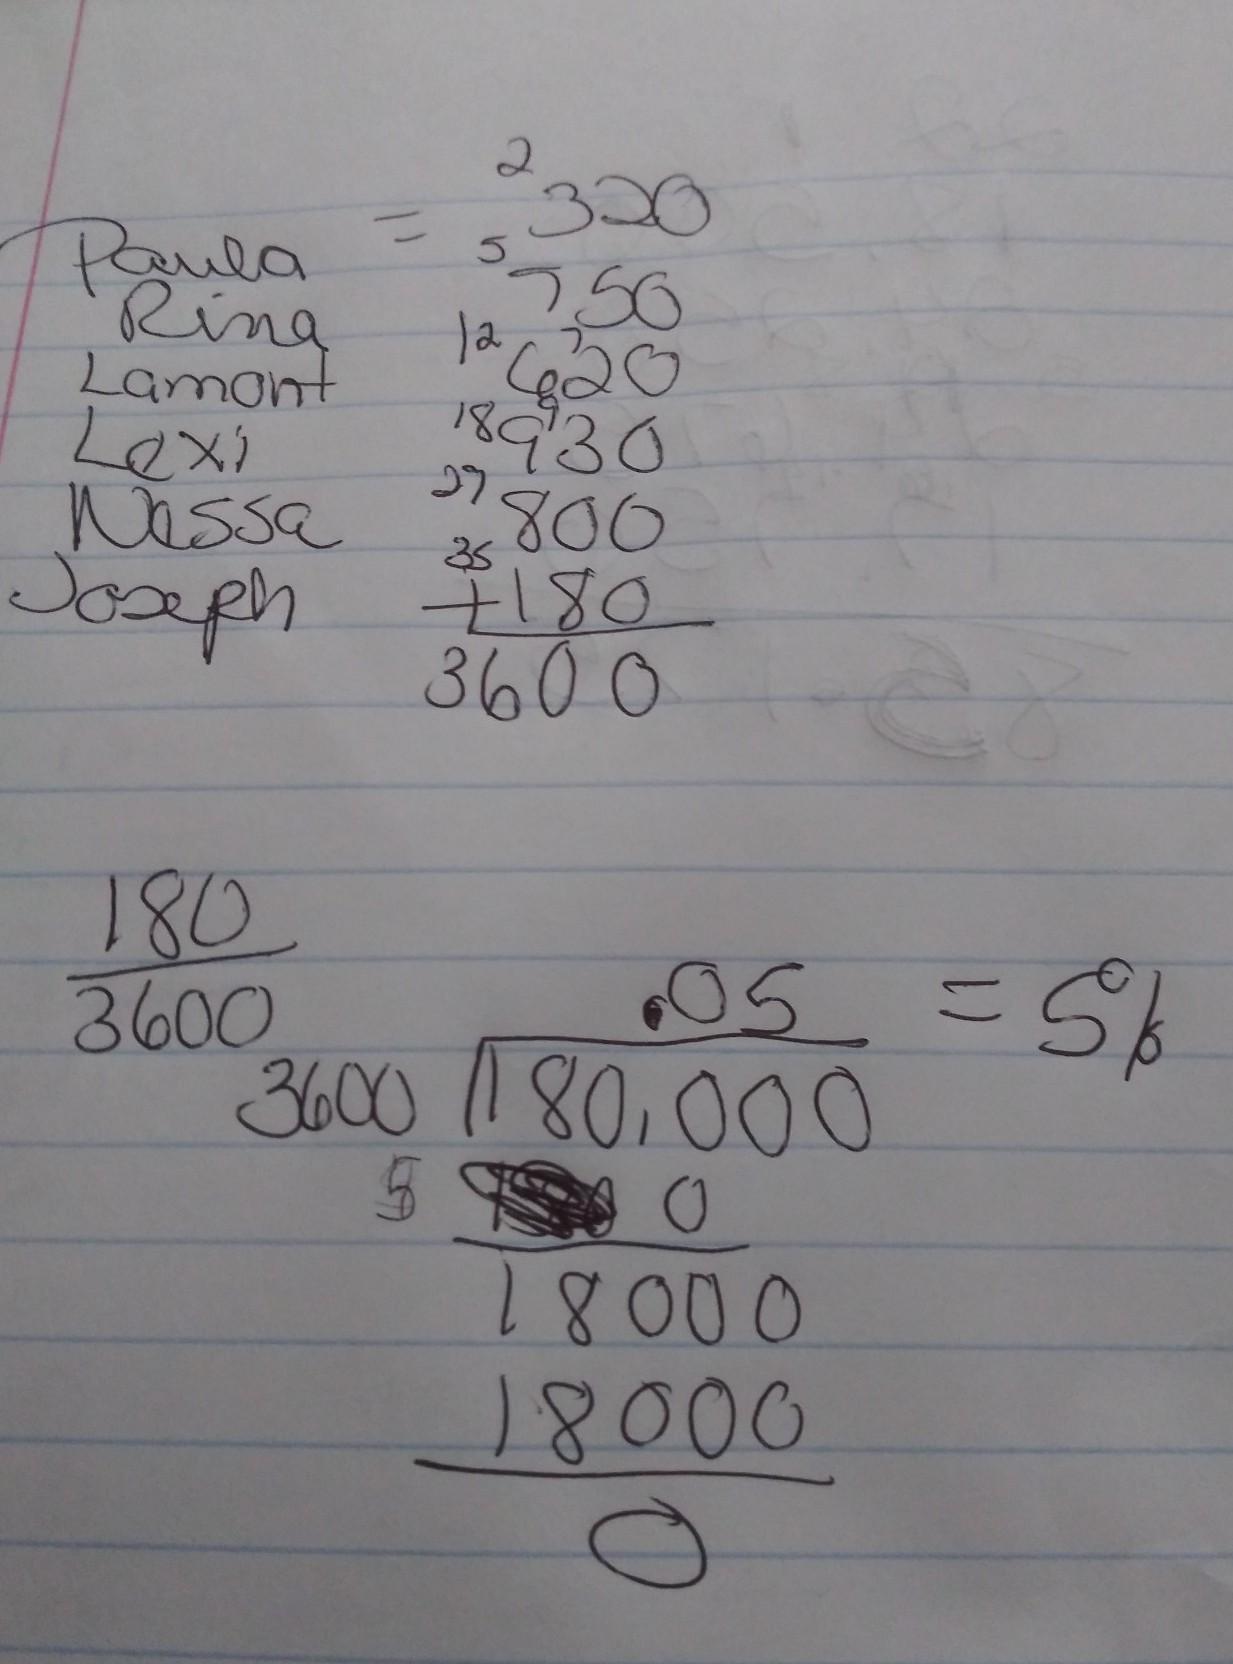 2
Paula = 320
5
Rina 750
12 7
Lamont 620
18 9
Lexi 930
27
Nessa 800
35
Joseph +180
3600
180
3600
.05 = 5%
3600 180.000
5 0
18000
18000
0